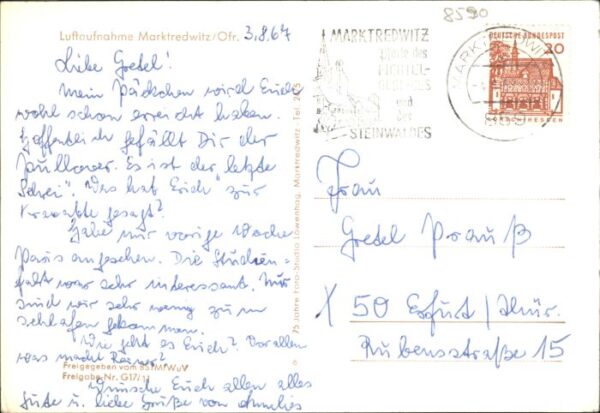 8590
Luftaufnahme Marktredwitz/Ofr. 3.8.67
Liebe Gretel!
Mein Päckchen wird Euch
wohl schon erreicht haben.
Hoffentlich gefällt Dir der
Pullover. Es ist der "letzte
Schrei". Was hat Erich zur
Krawatte gesagt?
Habe mir vorige Woche
Paris angesehen. Die Studien-
fahrt war sehr interessant. Nur
sind wir sehr wenig zum
schlafen gekommen.
Wie geht es Erich? Vor allem
was macht Rainer?
Wünsche Euch allen alles
Gute u. liebe Grüße von
Freigegeben vom BStMfWuV
Freigabe Nr. G17/
75 Jahre Foto-Studio Löwenhag, Marktredwitz, Tel.
MARKTREDWITZ
Pforte des
FICHTEL-
GEBIRGES
und
des
STEINWALDES
MARKTREDWITZ
DEUTSCHE BUNDESPOST
20
LORSCH/HESSEN
Frau
Gretel Prauß
X 50 Erfurt/Thür.
Rubensstraße 15